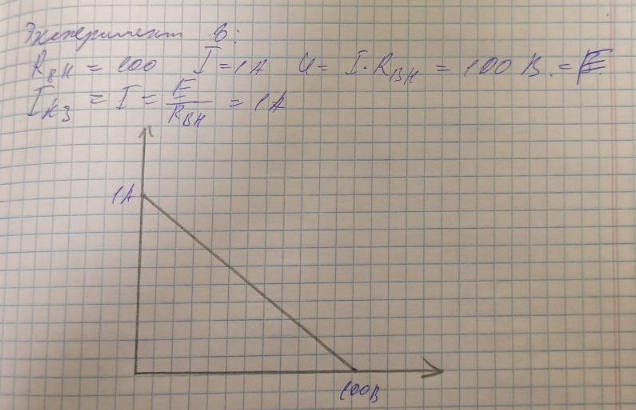 Эксперимент 8:
Rвн = 100 I = 1А U = I·Rвн = 100 В. = E
Iкз = I = E/Rвн = 1А
1А
100В